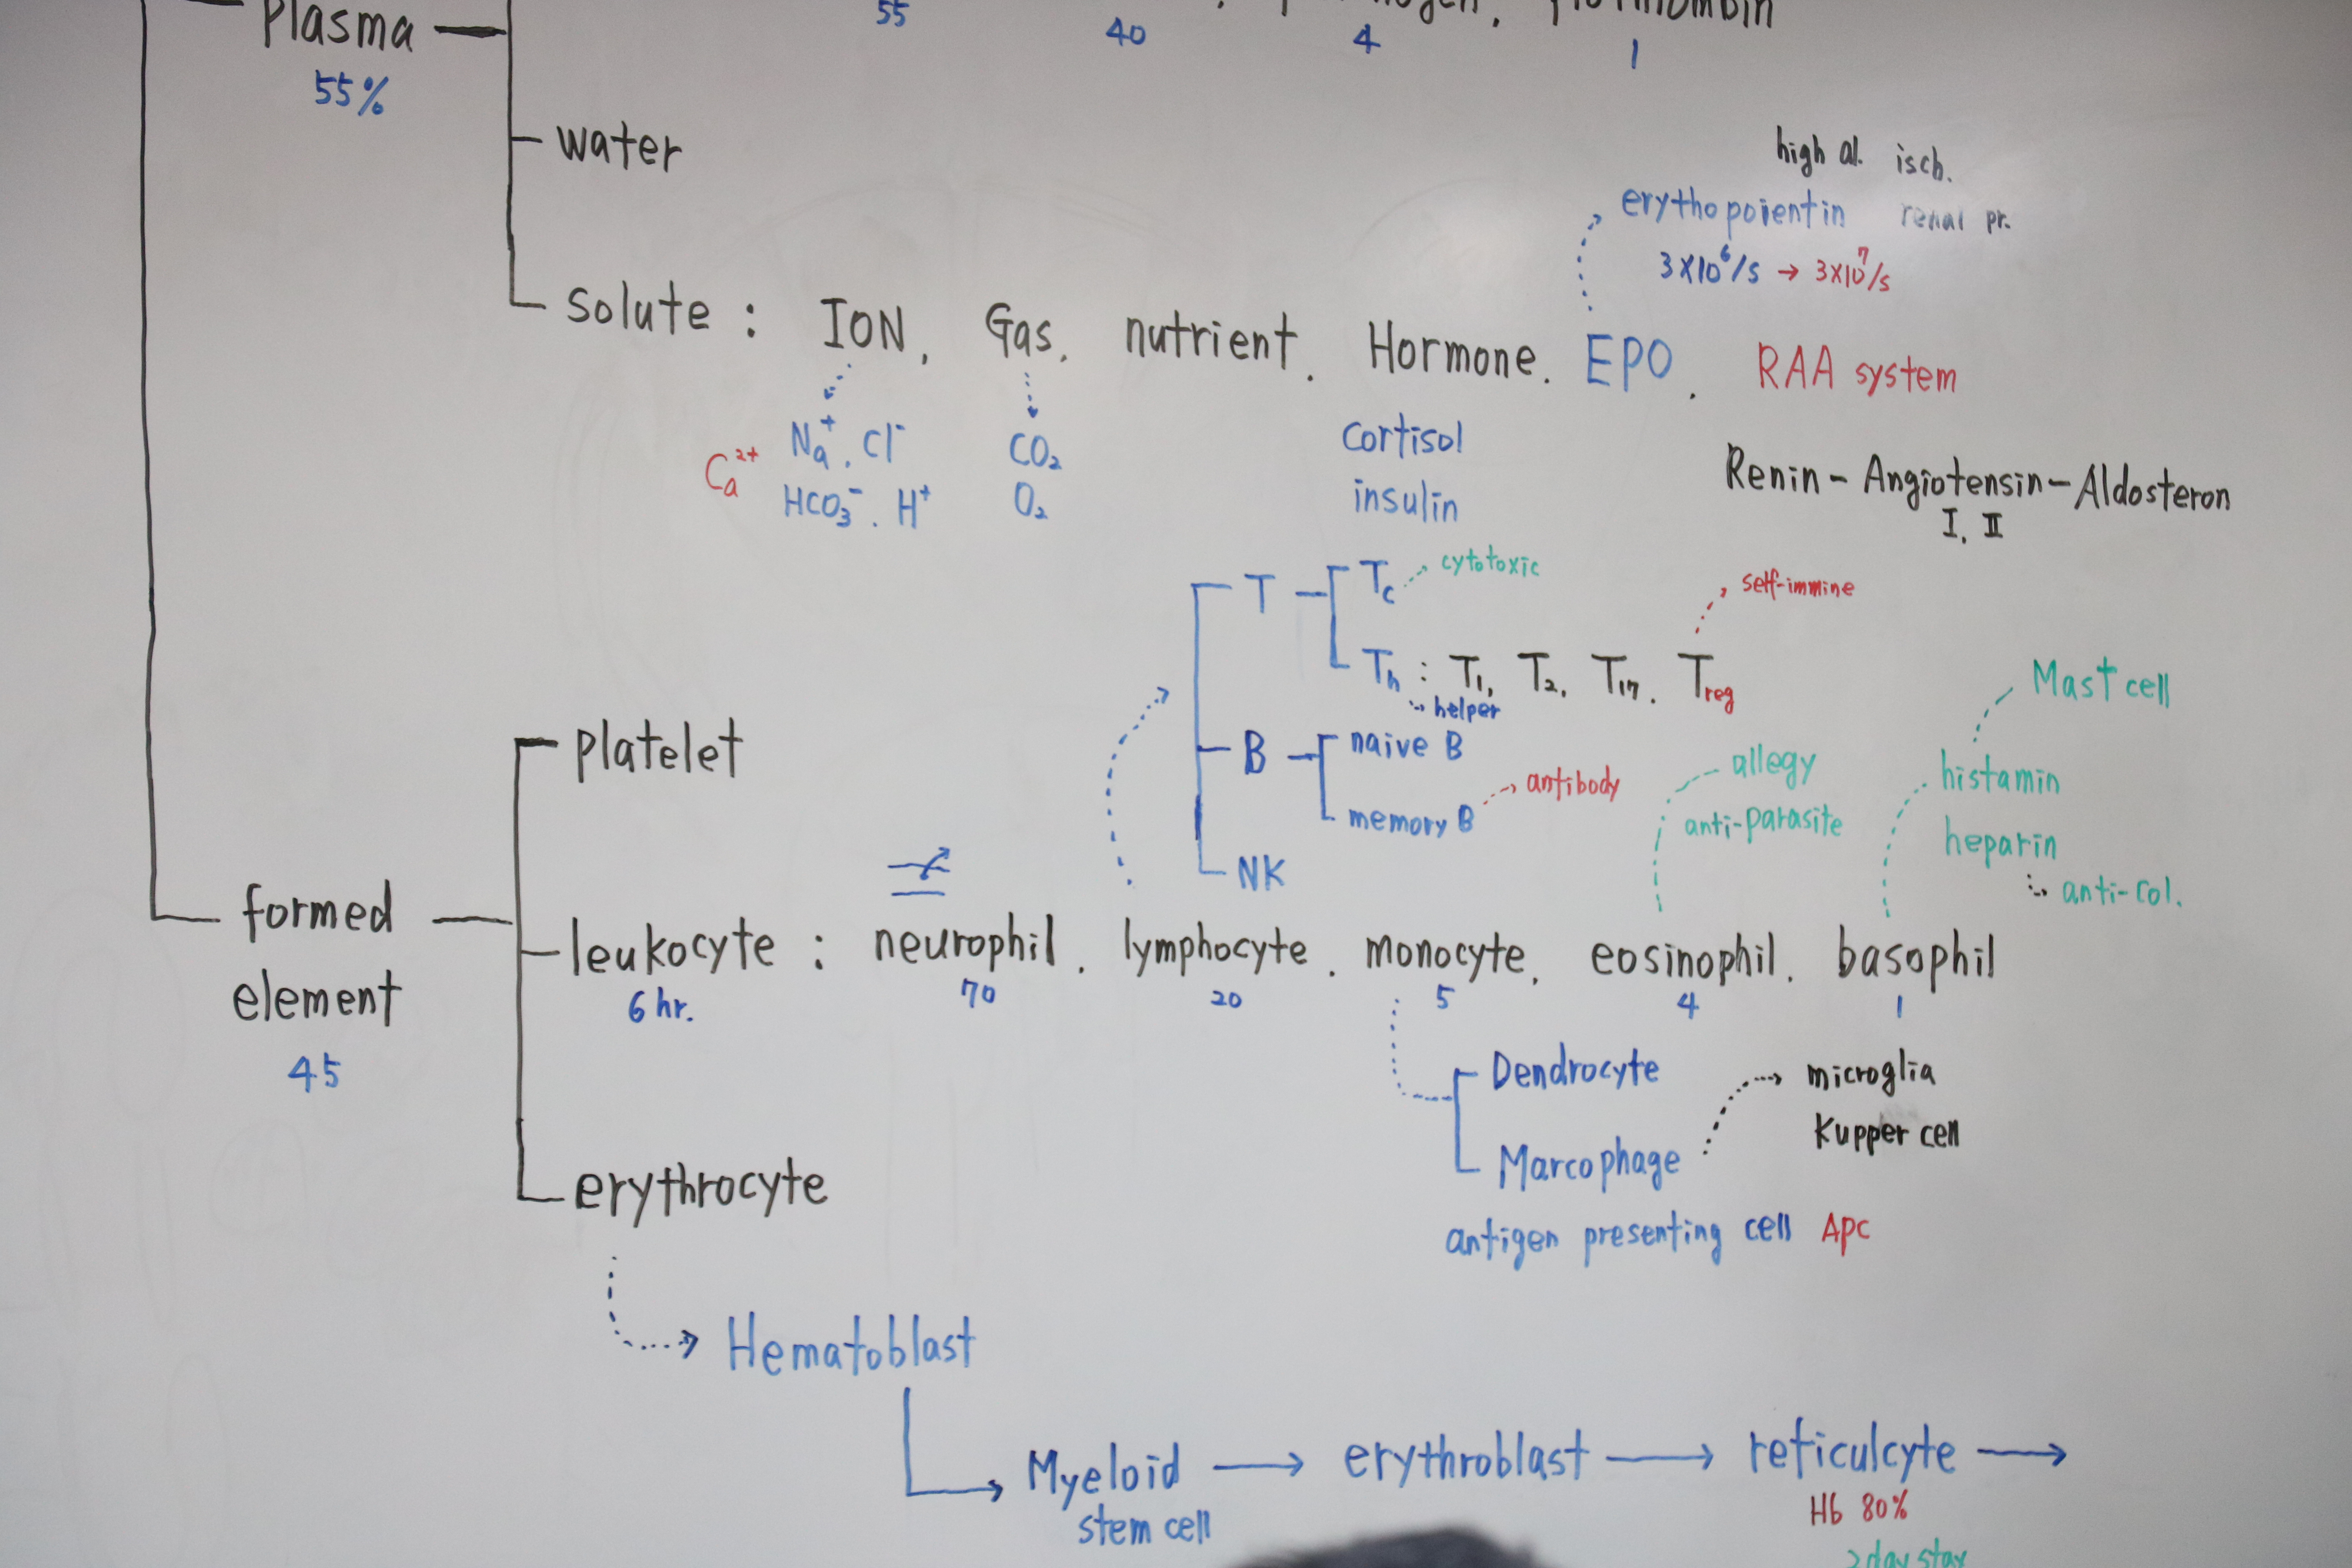 plasma
55%
55 40 4 1
water
high al. isch.
erythopoientin renal pr.
3×10⁶/s → 3×10⁷/s
solute : ION, Gas, nutrient. Hormone. EPO. RAA system
Na⁺, Cl⁻
Ca²⁺
HCO₃⁻. H⁺
CO₂
O₂
cortisol
insulin
Renin - Angiotensin - Aldosteron
I, II
T
Tc cytotoxic
self-immine
Th : T1, T2, T17. Treg
helper
B
naive B
memory B antibody
NK
Mast cell
allegy
anti-parasite
histamin
heparin
anti-col.
platelet
formed
element
45
leukocyte : neurophil. lymphocyte. monocyte, eosinophil. basophil
6 hr. 70 20 5 4 1
Dendrocyte
Marcophage
microglia
Kupper cell
antigen presenting cell APC
erythrocyte
Hematoblast
Myeloid → erythroblast → reticulcyte →
stem cell
Hb 80%
2 day stay